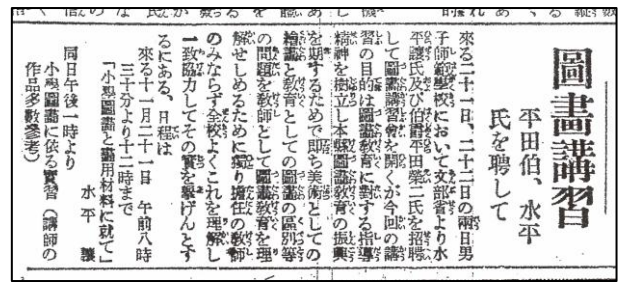 圖畫講習
平田伯、水平
氏を聘して
來る二十一日、二十二日の兩日男
子師範學校において文部省より水
平讓氏及び伯爵平田榮二氏を招聘
して圖畫講習會を開くが今回の講
習の目的は圖畫教育に對する指導
精神を樹立し本縣圖畫教育の振興
を期するためで即ち美術としての
繪畫と教育としての圖畫の區別等
の問題を教師として圖畫教育を理
解せしめるために獨り擔任の教師
のみならず全校よくこれを理解し
一致協力してその實を擧げんとす
るにある、日程は
來る十一月二十一日 午前八時
三十分より十二時まで
「小學圖畫と畫用材料に就て」
水平 讓
同日午後一時より
小學圖畫に依る實習（講師の
作品多數參考）